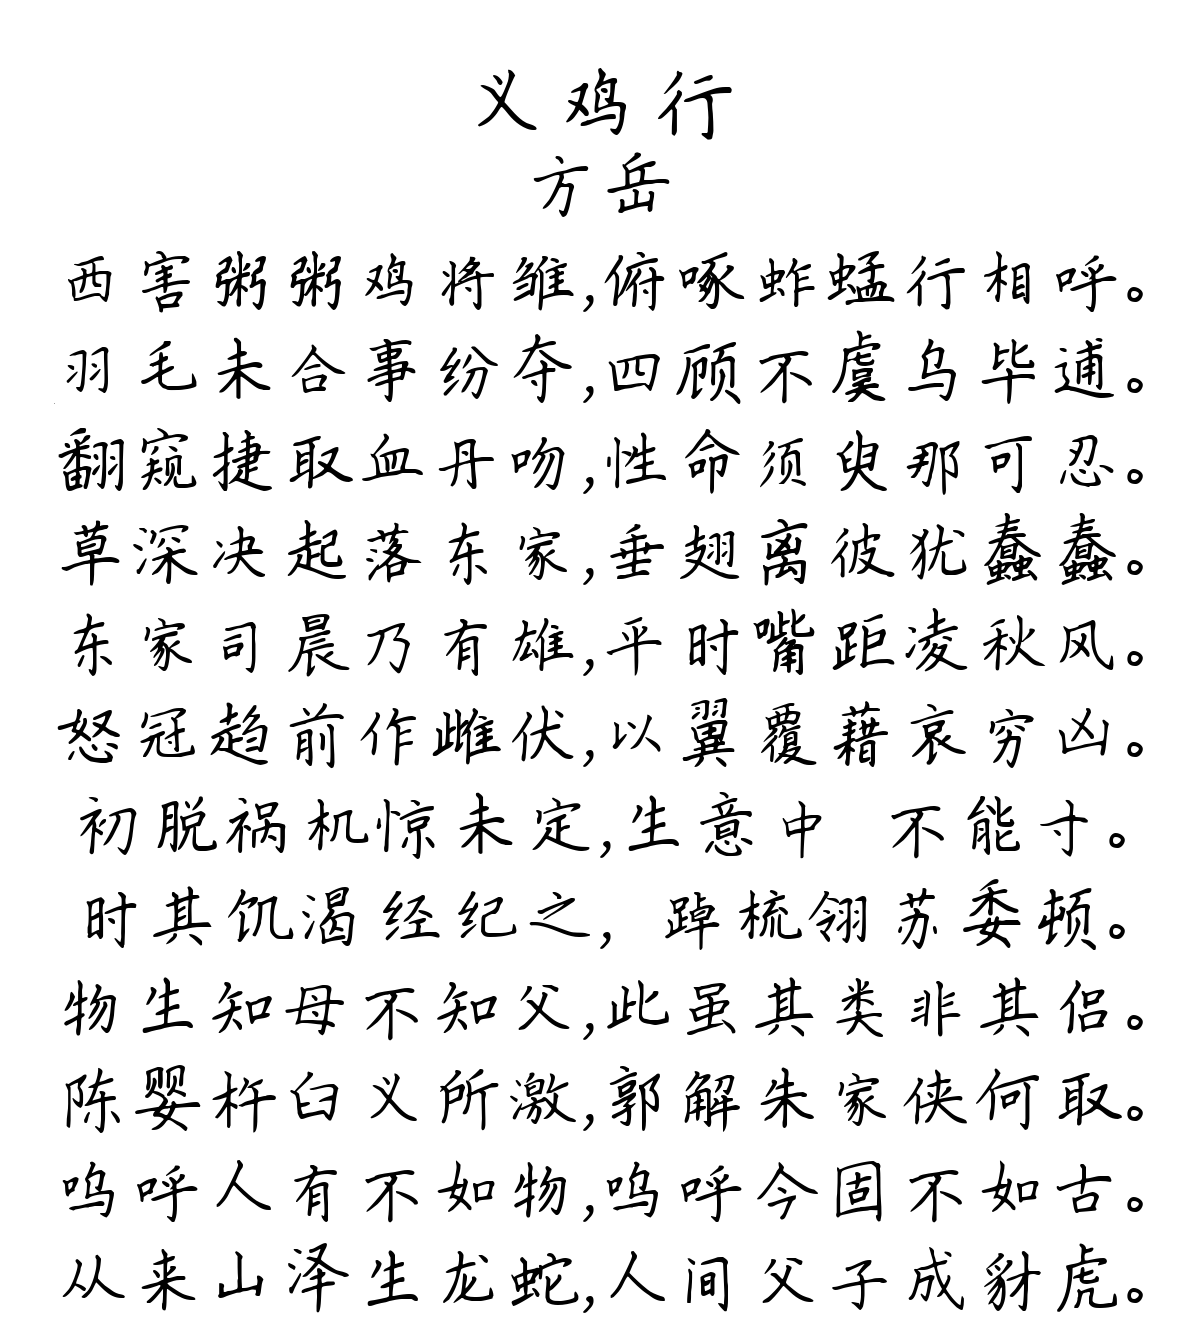 义鸡行
方岳
西害粥粥鸡将雏,俯啄蚱蜢行相呼。
羽毛未合事纷夺,四顾不虞乌毕逋。
翻窥捷取血丹吻,性命须臾那可忍。
草深决起落东家,垂翅离彼犹蠢蠢。
东家司晨乃有雄,平时嘴距凌秋风。
怒冠趋前作雌伏,以翼覆藉哀穷凶。
初脱祸机惊未定,生意中 不能寸。
时其饥渴经纪之, 踔梳翎苏委顿。
物生知母不知父,此虽其类非其侣。
陈婴杵臼义所激,郭解朱家侠何取。
呜呼人有不如物,呜呼今固不如古。
从来山泽生龙蛇,人间父子成豺虎。